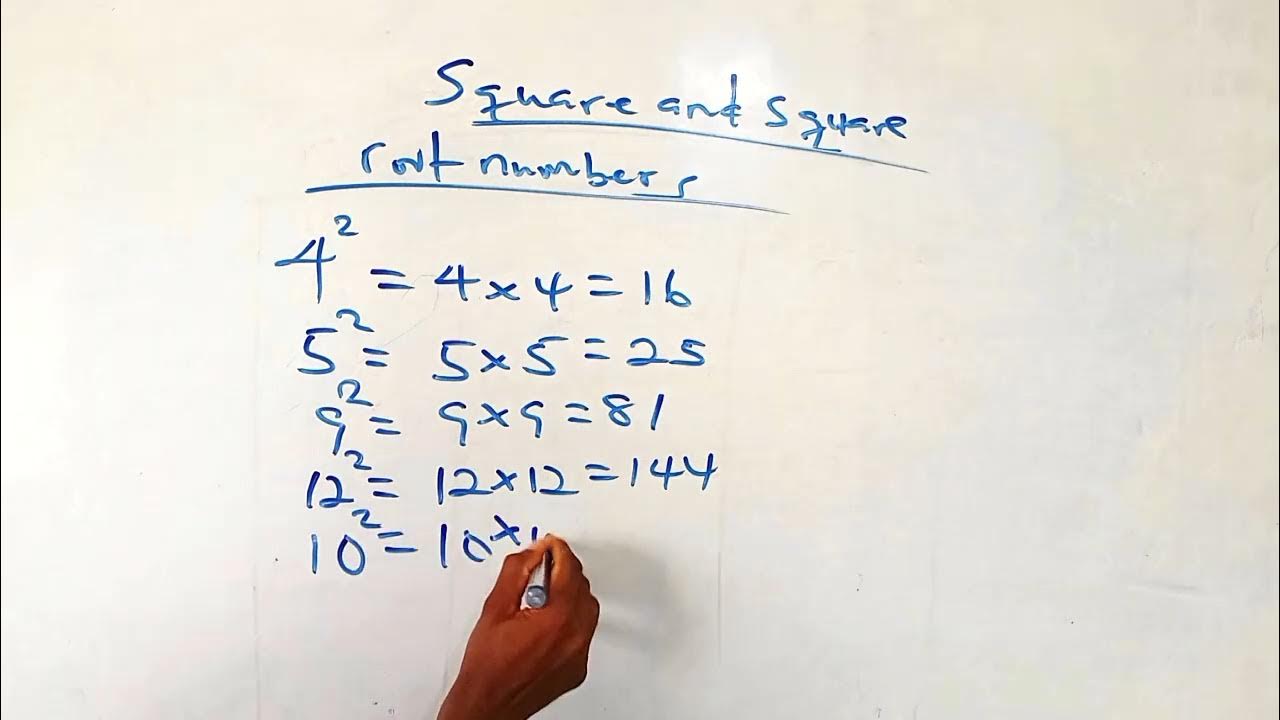 Square and square
root numbers
4² = 4 × 4 = 16
5² = 5 × 5 = 25
9² = 9 × 9 = 81
12² = 12 × 12 = 144
10² = 10 × 1